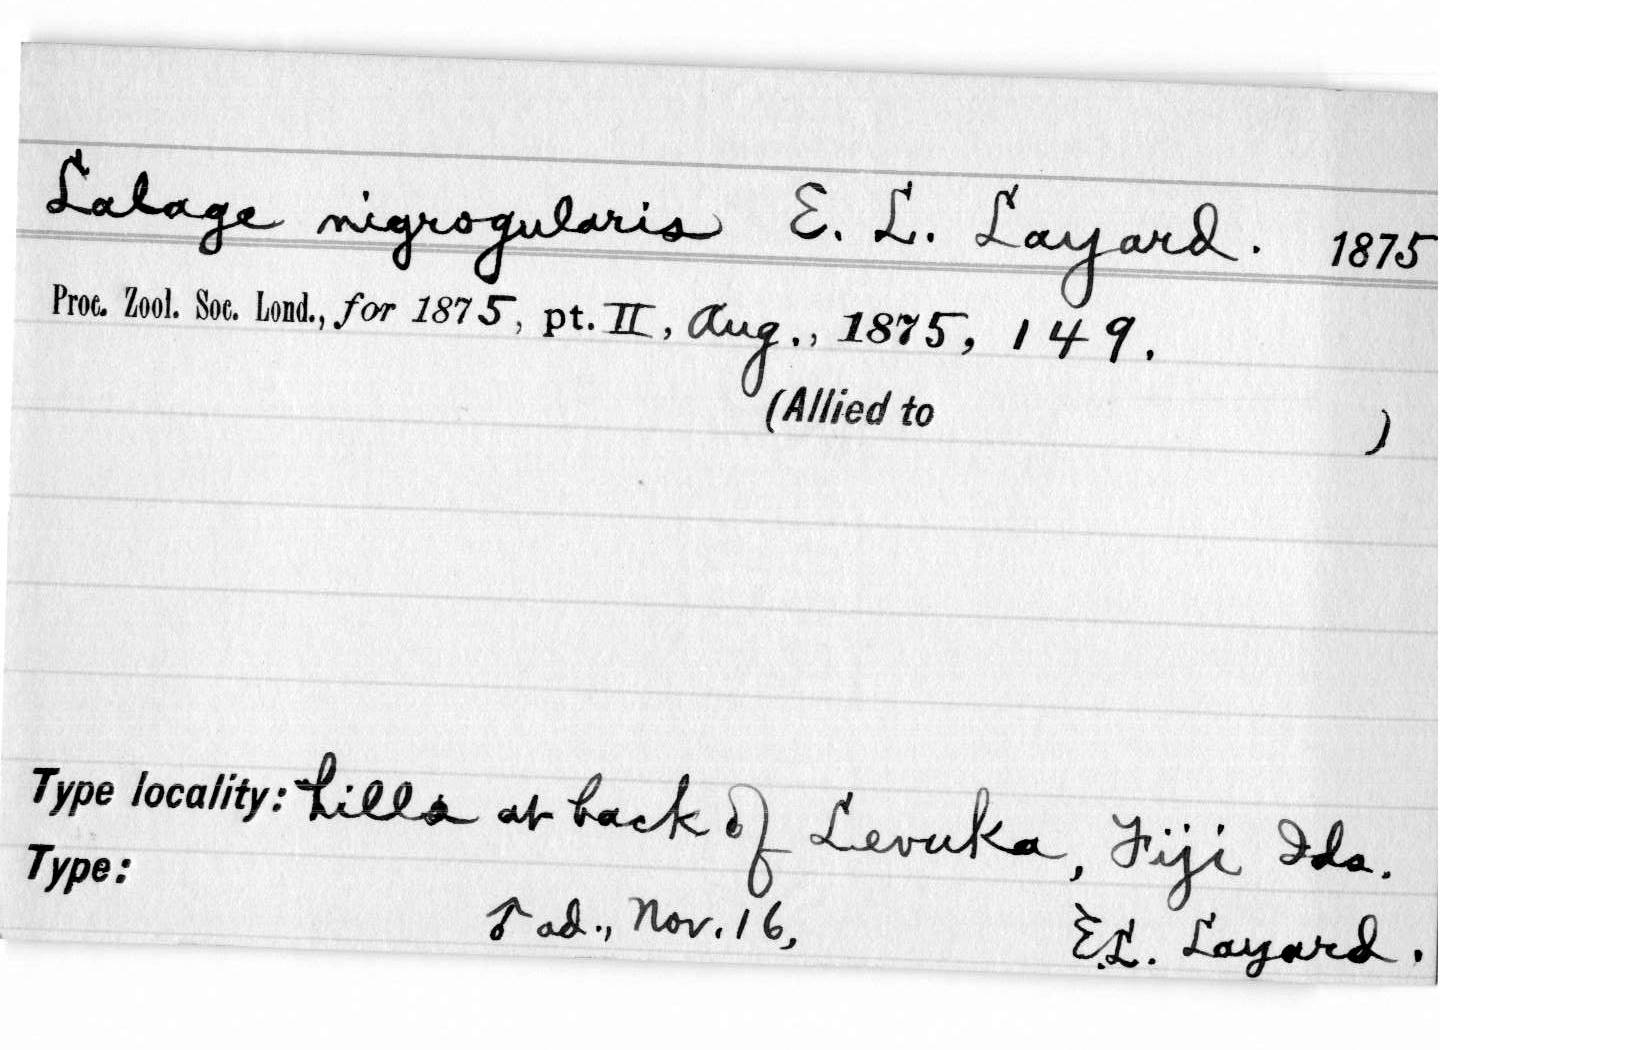 Lalage nigrogularis E. L. Layard. 1875
Proc. Zool. Soc. Lond., for 1875, pt. II, Aug., 1875, 149.
(Allied to )
Type locality: hills at back of Levuka, Fiji Ids.
Type:
♂ ad., Nov. 16, E.L. Layard.